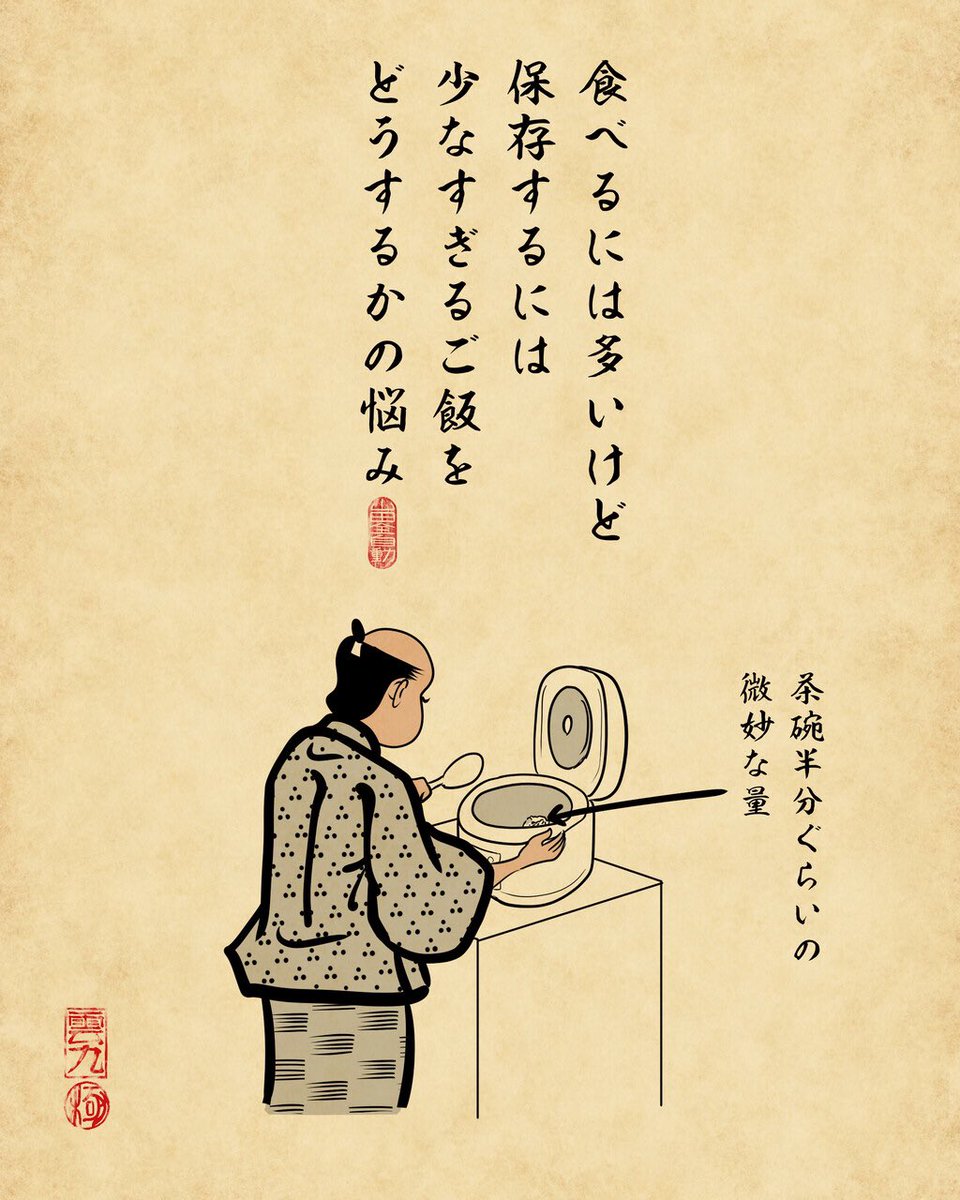 食べるには多いけど
保存するには
少なすぎるご飯を
どうするかの悩み
茶碗半分ぐらいの
微妙な量